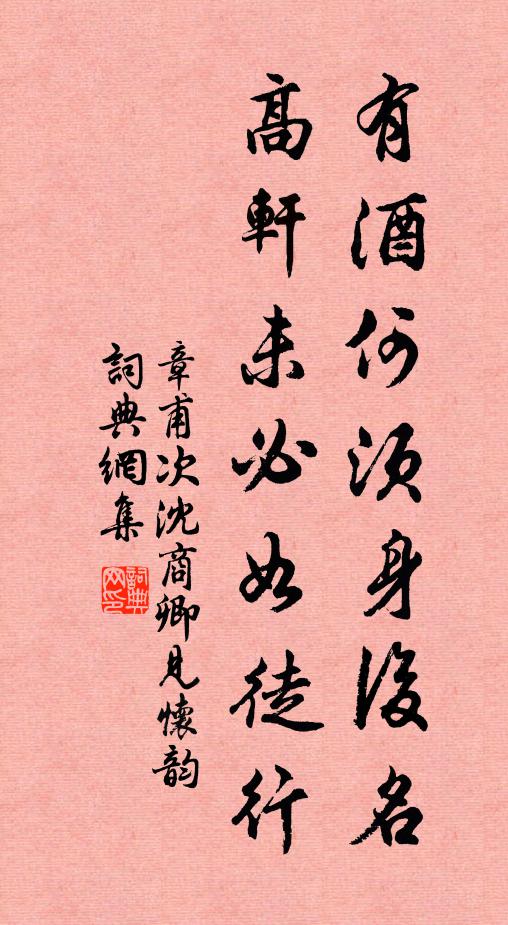 有酒何須身後名
高軒未必如徒行
章甫次沈商卿見懷韵
詞典網集
詞典网印